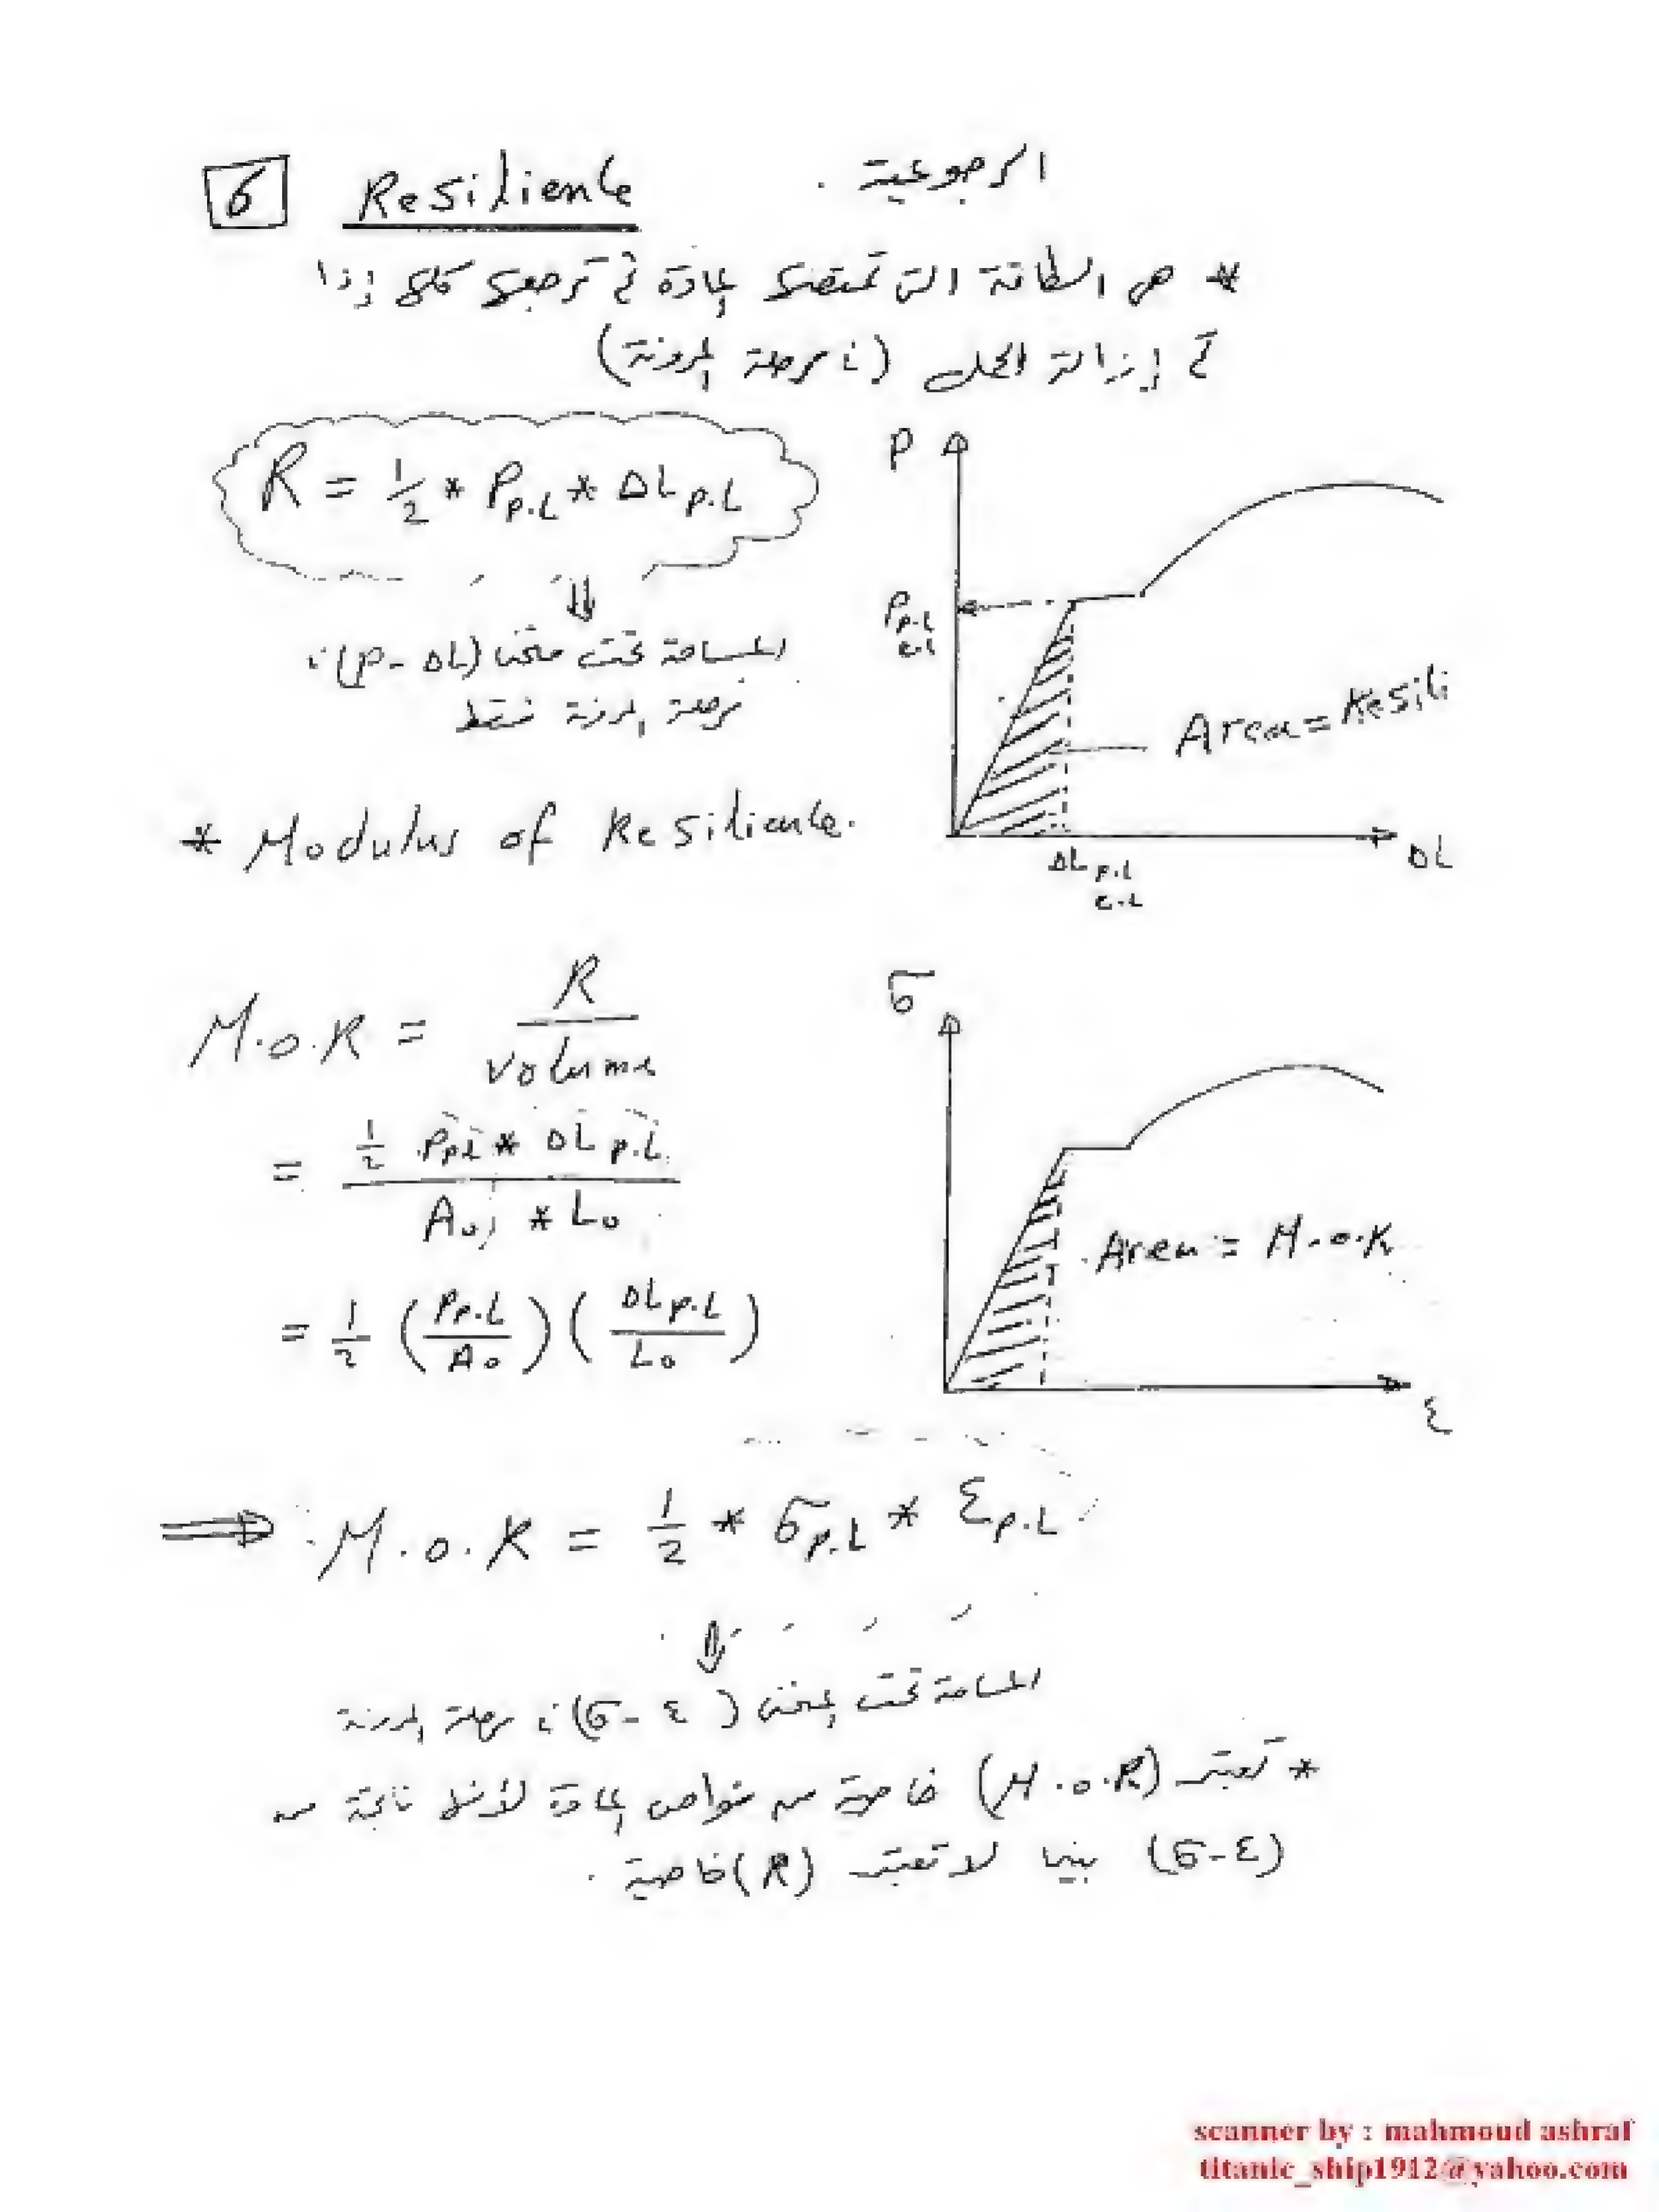 6 Resilience الرجوعية .
* هى الطاقة التى تمتصها المادة ثم ترجعها كلها إذا
تم إزالة الحمل (فى مرحلة المرونة)
R = 1/2 * P_P.L * ΔL_P.L
⇓
المساحة تحت منحنى (P - ΔL) فى
مرحلة المرونة فقط
P
P_P.L
E.L
Area = Resili
ΔL_P.L
E.L
ΔL
* Modulus of Resilience.
M.o.R = R / volume
= 1/2 P_P.L * ΔL_P.L / A_o * L_o
= 1/2 (P_P.L / A_o) (ΔL_P.L / L_o)
σ
Area = M.o.R
ε
⇒ M.o.R = 1/2 * σ_P.L * ε_P.L
⇓
المساحة تحت المنحنى (σ - ε) فى مرحلة المرونة
* تعتبر (M.o.R) خاصية من خواص المادة لأنها ناتجة من
(σ-ε) بينما لا تعتبر (R) خاصية .
scanner by : mahmoud ashraf
titanic_ship1912@yahoo.com